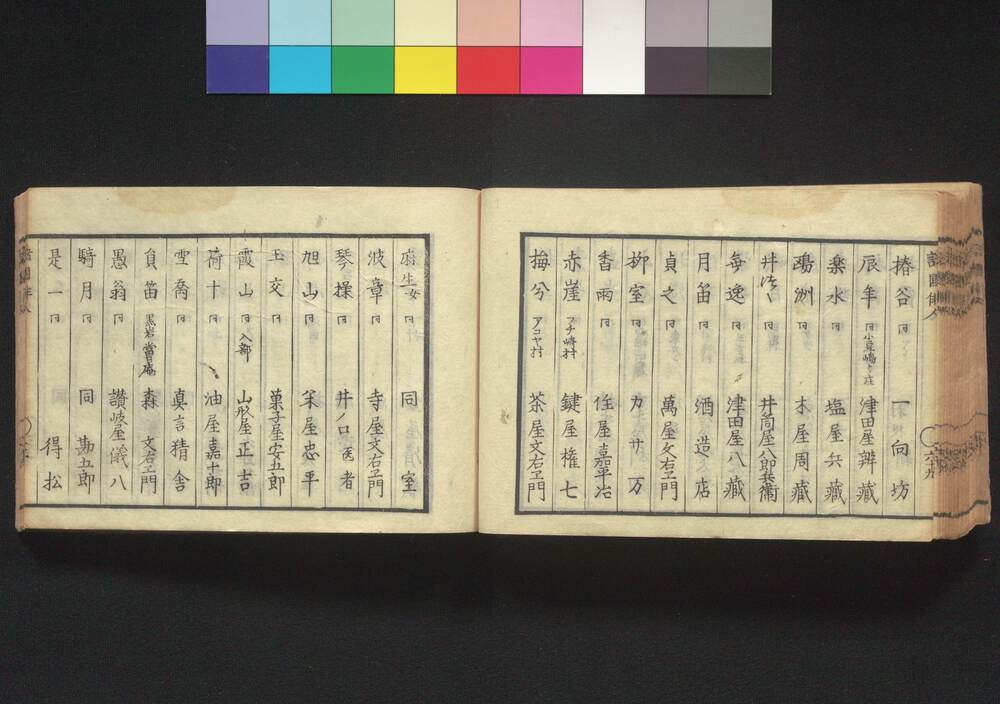 椿谷 同 一向坊
辰年 同 小豆嶋 津田屋辨藏
楽水 同 塩屋兵藏
鴎洲 同 木屋周藏
井 同 井筒屋八郎兵衞
毎逸 同 津田屋八藏
月笛 同 酒造店
貞之 同 萬屋文右ヱ門
柳室 同 カサ万
香雨 同 住屋嘉平治
赤崖 フチ崎村 鍵屋権七
梅兮 アコヤ村 茶屋文右ヱ門
麻生女 同 同室
波章 同 寺屋文右ヱ門
琴操 同 井ノ口医者
旭山 同 米屋忠平
玉交 同 菓子屋安五郎
霞山 同 入部 山形屋正吉
荷十 同 油屋嘉十郎
雪斎 同 真言精舎
負笛 同 黒岩 當庵 森文右ヱ門
愚翁 同 讃岐屋儀八
騎月 同 同勘五郎
是一 同 得松